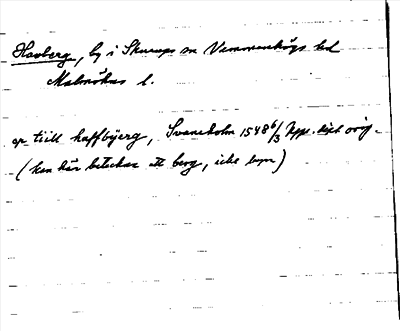 Havberg, by i Skurups sn Vemmenhögs hd
Malmöhus l.
ap tiill haffbyerg, Svaneholm 1548 6/3 Ppr. orig.
(kan här beteckna ett berg, icke byn)